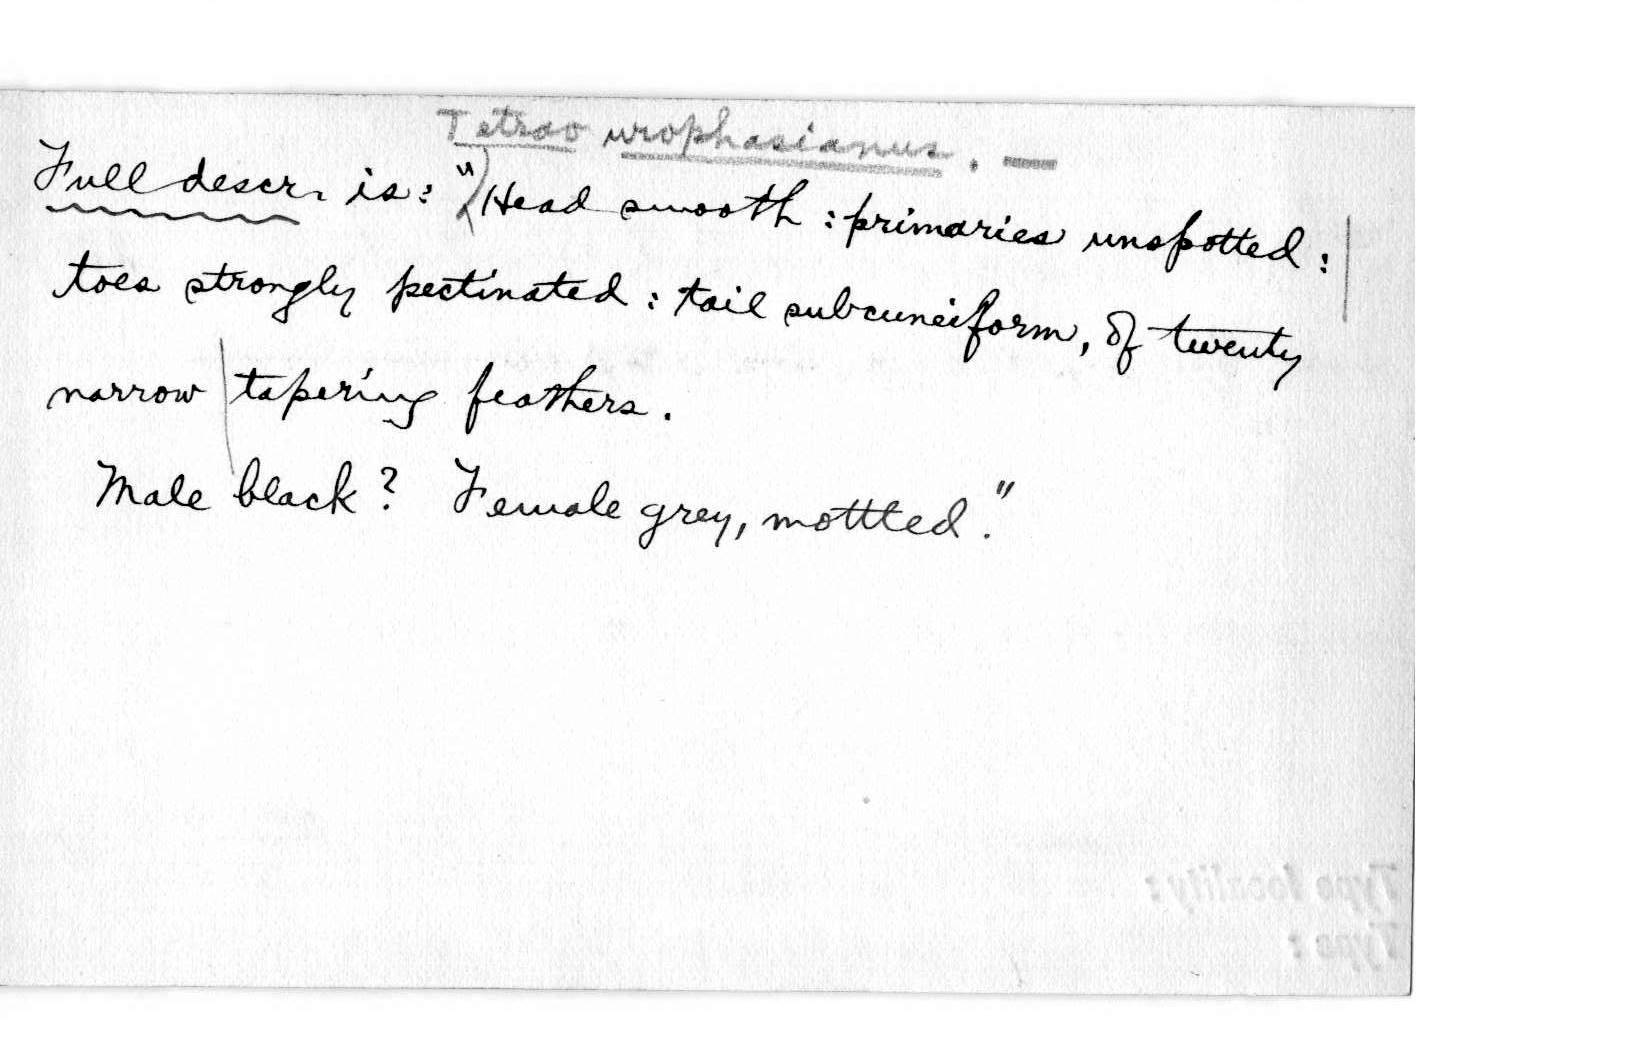 Tetrao urophasianus. —
Full descr. is: "Head smooth : primaries unspotted :
toes strongly pectinated : tail subcuneiform, of twenty
narrow tapering feathers.
Male black? Female grey, mottled."
Type locality :
Type :